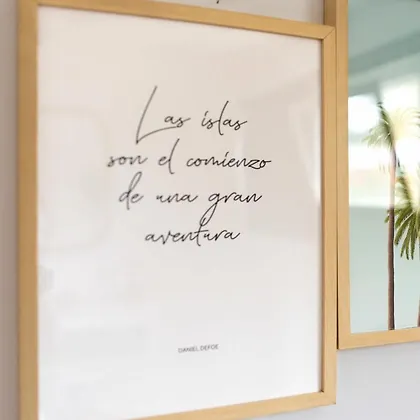 Las islas
son el comienzo
de una gran
aventura
DANIEL DEFOE